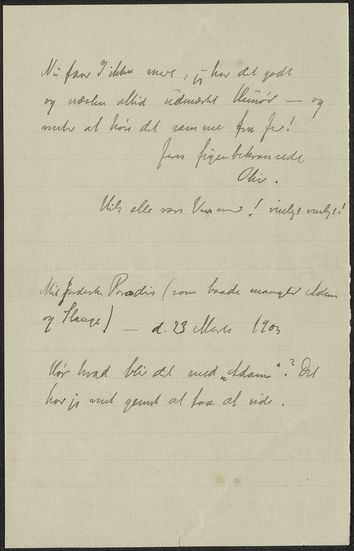 Nu faar I ikke mere, jeg har det godt
og næsten altid udmærket Humør — og
venter at høre det samme fra jer!
Jeres figenbekransede
Oliv.
Hils alle vore Venner! venligst venligst!
Mit jordiske Paradis (som baade mangler Adam
og Slange) — d. 23 Marts 1903
Hør hvad blir det med „Adam“? Det
har jeg nok glemt at faa at vide.